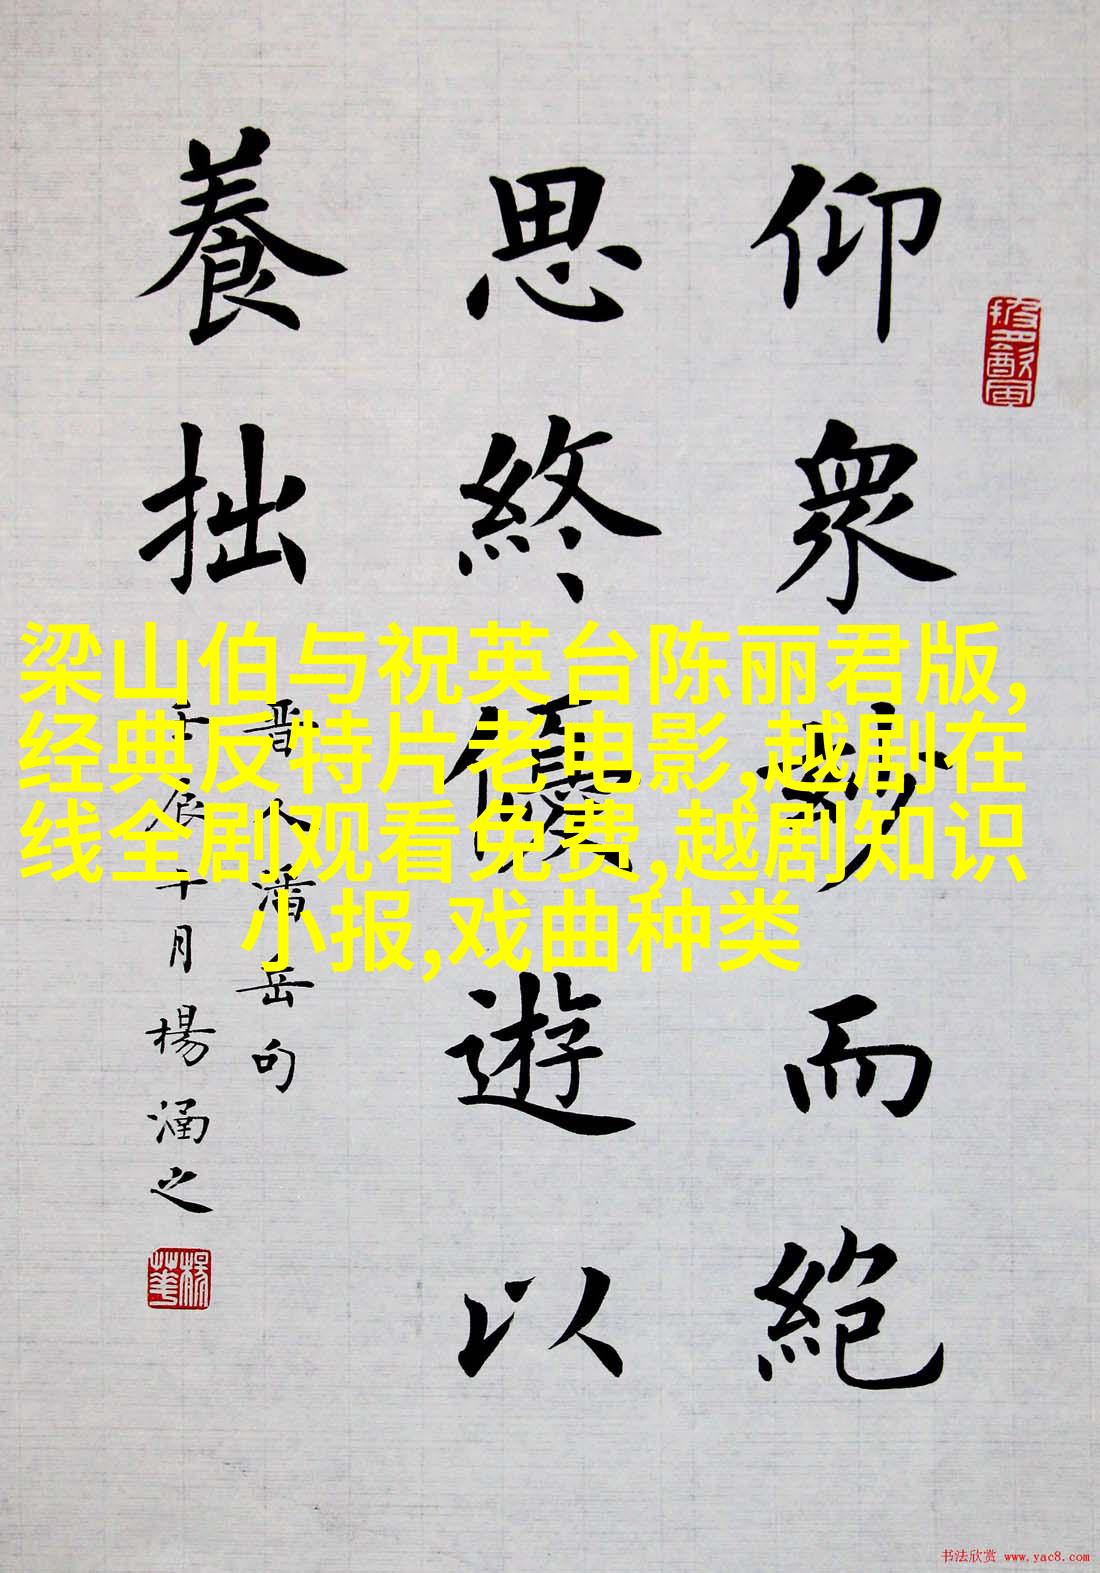 仰眾妙而絕
思終優遊以
養拙
晉人潘岳句
壬辰十月楊涵之
梁山伯与祝英台陈丽君版,
经典反特片老电影,越剧在
线全剧观看免费,越剧知识
小报,戏曲种类
书法欣赏 www.yac8.com